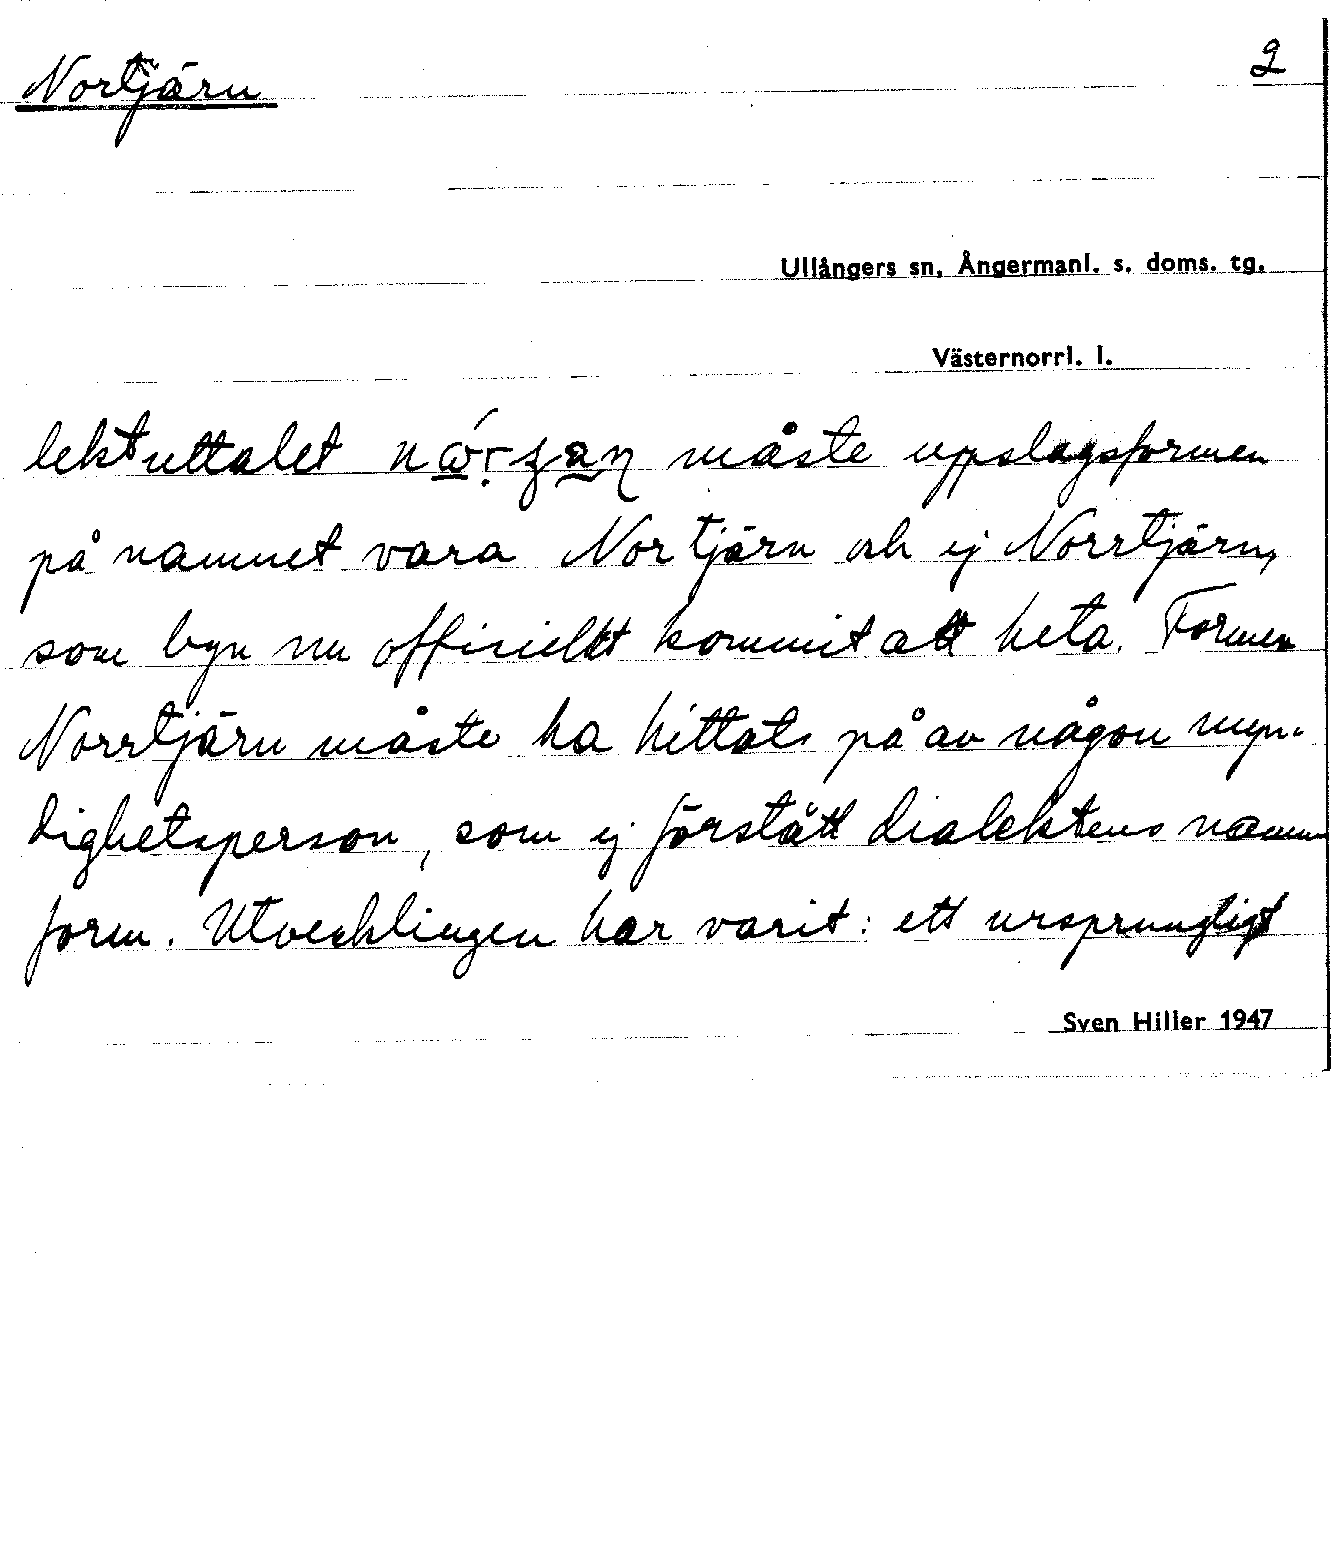 Nortjärn 2
Ullångers sn, Ångermanl. s. doms. tg.
Västernorrl. l.
lektuttalet måste uppslagsformen
på namnet vara Nortjärn och ej Norrtjärn,
som byn nu officiellt kommit att heta. Formen
Norrtjärn måste ha hittats på av någon myn-
dighetsperson, som ej förstått dialektens namn
form. Utvecklingen har varit: ett ursprungligt
Sven Hiller 1947